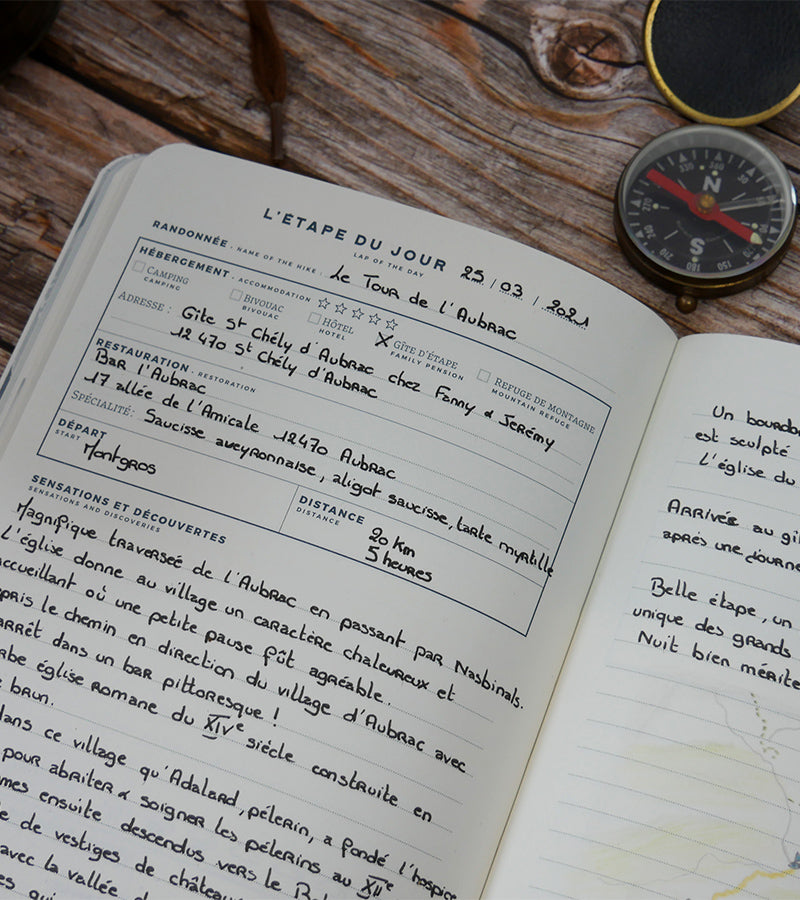 L'ÉTAPE DU JOUR 25 / 03 / 2021
LAP OF THE DAY
RANDONNÉE . NAME OF THE HIKE : Le Tour de l'Aubrac
HÉBERGEMENT . ACCOMMODATION
CAMPING
CAMPING
BIVOUAC
BIVOUAC
HÔTEL
HOTEL
GÎTE D'ÉTAPE
FAMILY PENSION
REFUGE DE MONTAGNE
MOUNTAIN REFUGE
ADRESSE : Gîte St Chély d'Aubrac chez Fanny & Jérémy
12 470 St Chély d'Aubrac
RESTAURATION . RESTORATION
Bar l'Aubrac
17 allée de l'Amicale 12470 Aubrac
SPÉCIALITÉ: Saucisse aveyronnaise, aligot saucisse, tarte myrtille
DÉPART
START
Montgros
DISTANCE
DISTANCE
20 km
5 heures
SENSATIONS ET DÉCOUVERTES
SENSATIONS AND DISCOVERIES
Magnifique traversée de l'Aubrac en passant par Nasbinals.
L'église donne au village un caractère chaleureux et
accueillant où une petite pause fût agréable.
pris le chemin en direction du village d'Aubrac avec
arrêt dans un bar pittoresque !
rbe église romane du XIVe siècle construite en
e brun.
dans ce village qu'Adalard, pélerin, a fondé l'hospice
pour abriter & soigner les pélerins au XIIe
mes ensuite descendus vers le
e de vestiges de château
avec la vallée
es qui
Un bourdo
est sculpté
l'église du
Arrivée au gî
après une journé
Belle étape, un
unique des grands
Nuit bien mérite
N
S
30
150
180
210
240
270
330